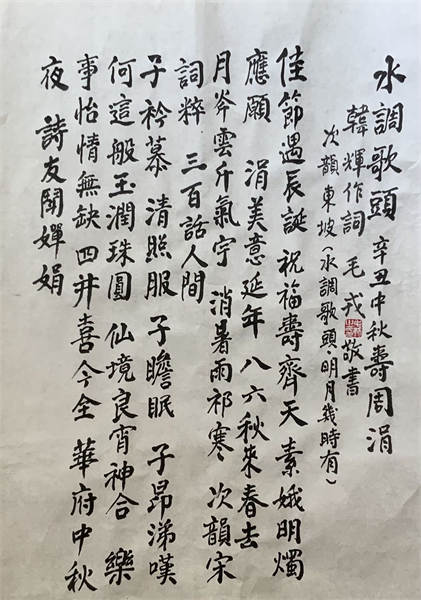 水調歌頭 辛丑中秋壽周涓
韓輝作詞 毛戎敬書
次韻東坡(水調歌頭·明月幾時有)
佳節遇辰誕 祝福壽齊天 素娥明燭
應願 涓美意延年 八六秋來春去
月岑雲斤氣宇 消暑雨祁寒 次韻宋
詞粹 三百話人間
子衿慕 清照服 子瞻眠 子昂涕嘆
何這般玉潤珠圓 仙境良宵神合 樂
事怡情無缺 四并喜今全 華府中秋
夜 詩友鬧嬋娟